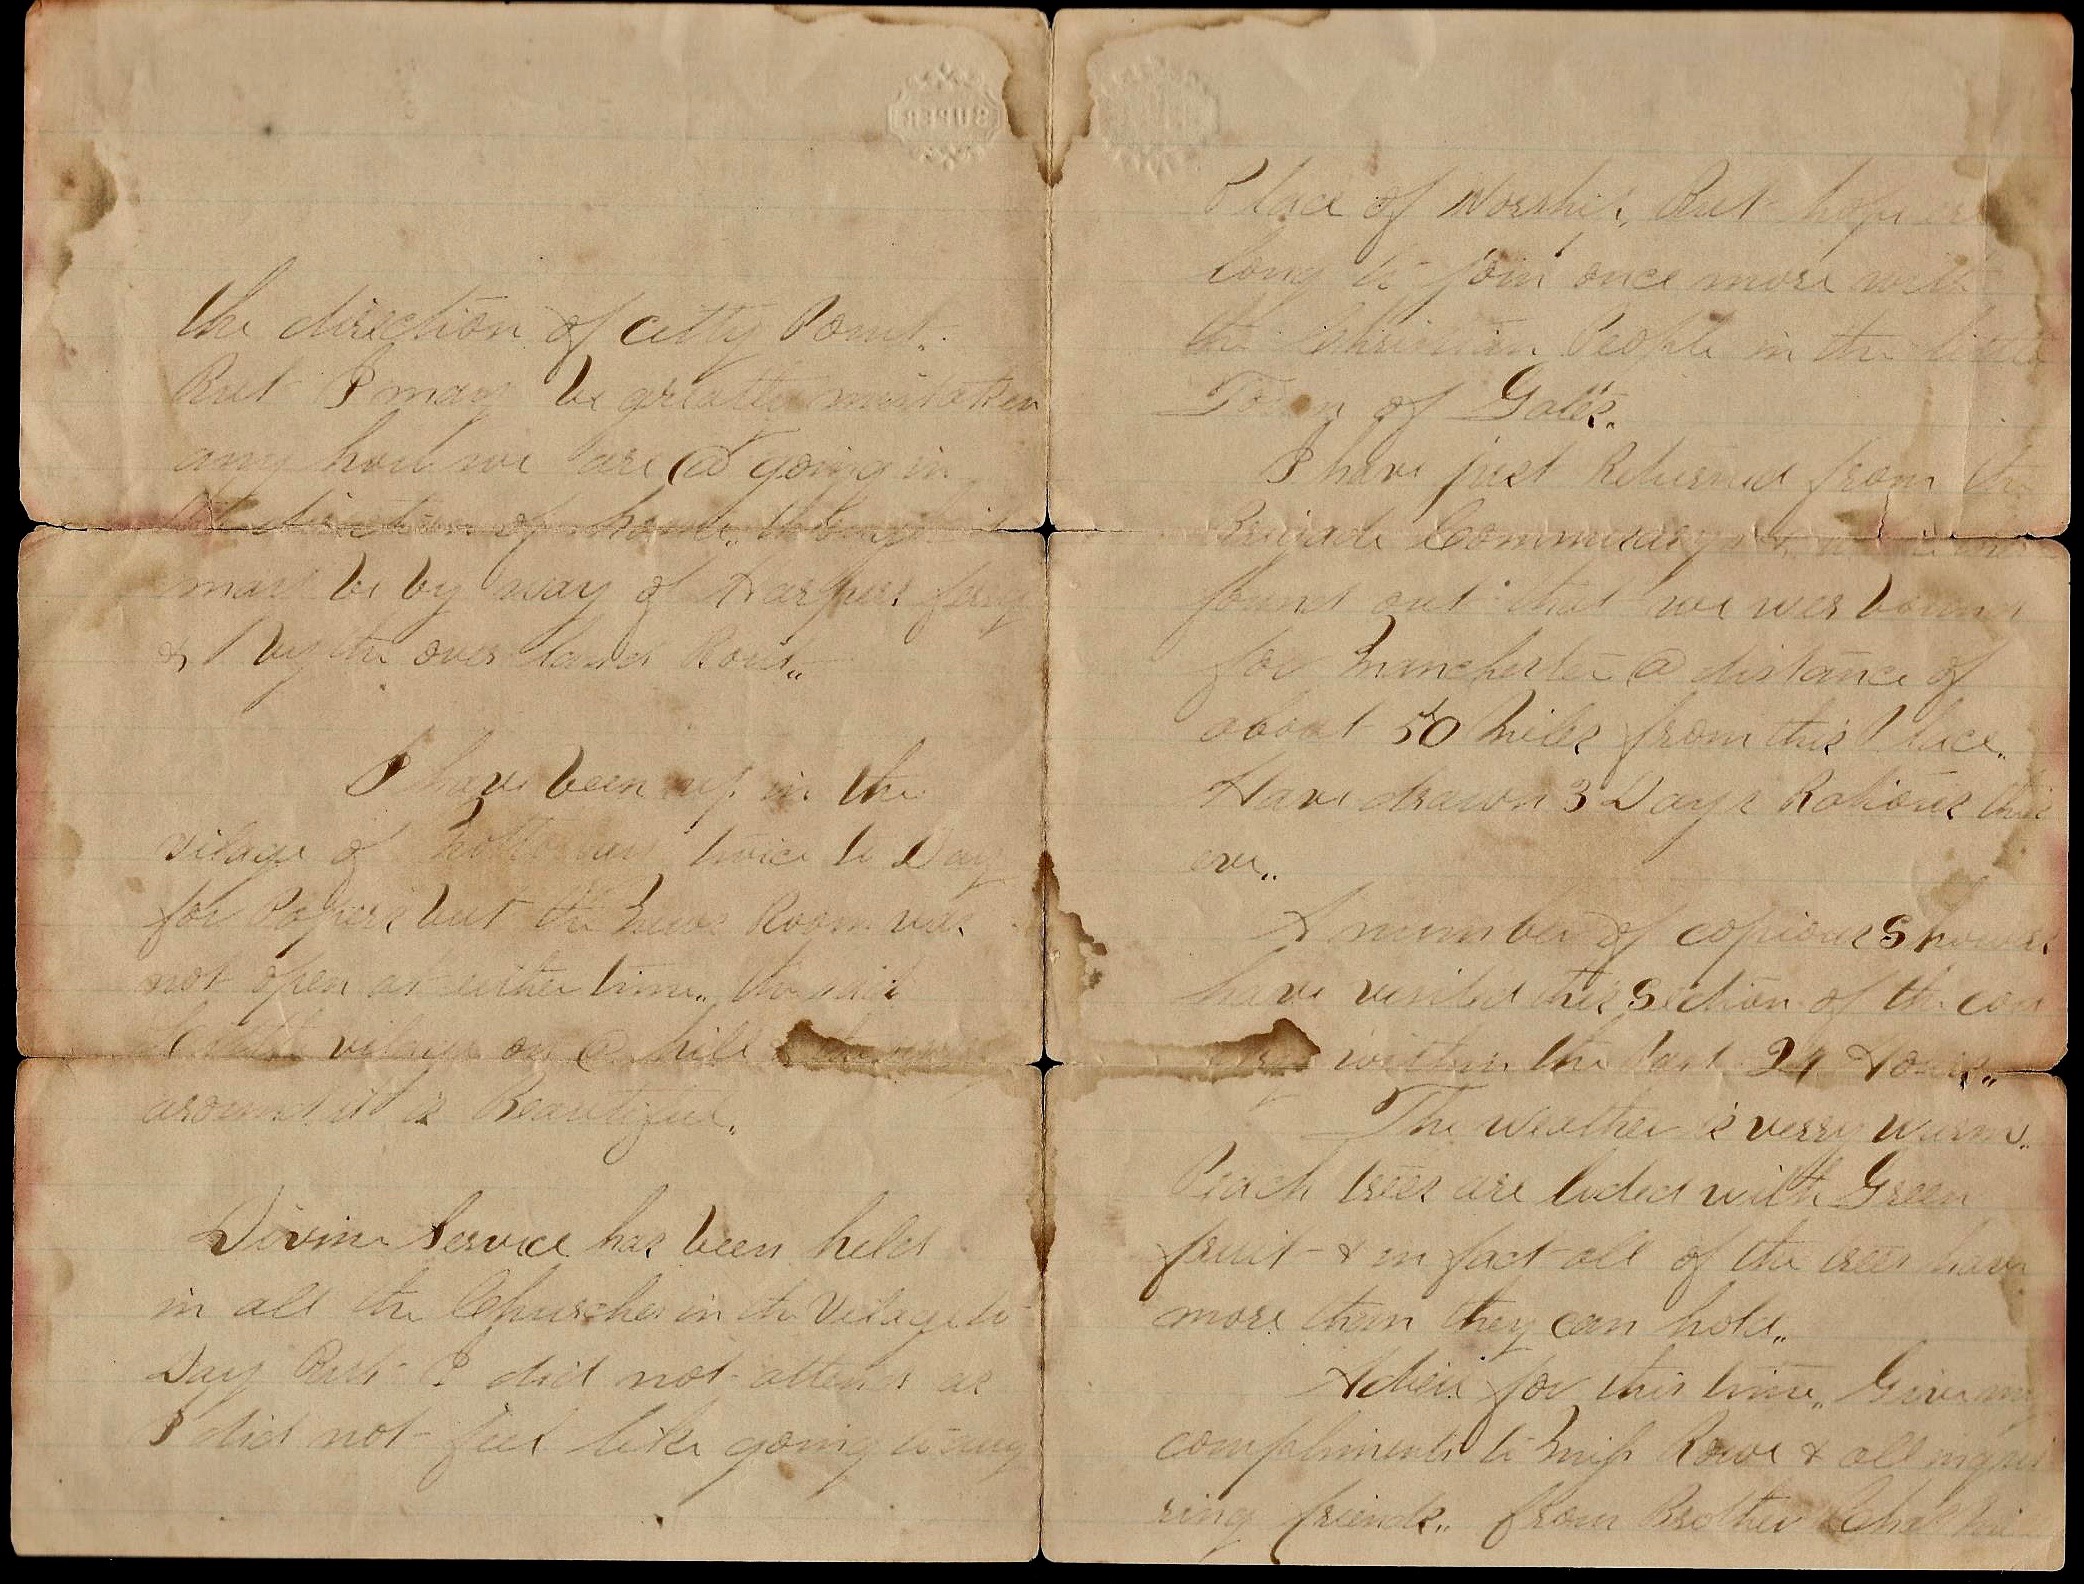 SUPER
the direction of citty Point.
But I may be greatly mistaken
any how we are @ going in
the direction of home though it
may be by way of Harpers ferry
& by the over land Rout,,
I have been up in the
vilage of twice to Day
for Papers but the News Room was
not open at either time,,
vilage on @ hill
around it is Beautiful.
Divine Service has been held
in all the Churches in the Vilage to
Day But I did not attend as
I did not feel like going to any
Place of Worship, But hope ere
long to join once more with
the Christian People in the little
Town of Gales,,
I have just Returned from the
Brigade Commisary
found out that we wer bound
for Manchester @ distance of
about 50 Miles from this Place,,
Have drawn 3 Days Rations this
eve,,
A number of copious Showers
have visited this Section of the coun
within the last 24 Hours,,
The weather is verry warm,,
Peach trees are loded with Green
fruit & in fact all of the trees have
more than they can hold,,
Adieu for this time,, Give my
compliments to Miss Rowe & all inqui
ring friends,, from Brother Chas